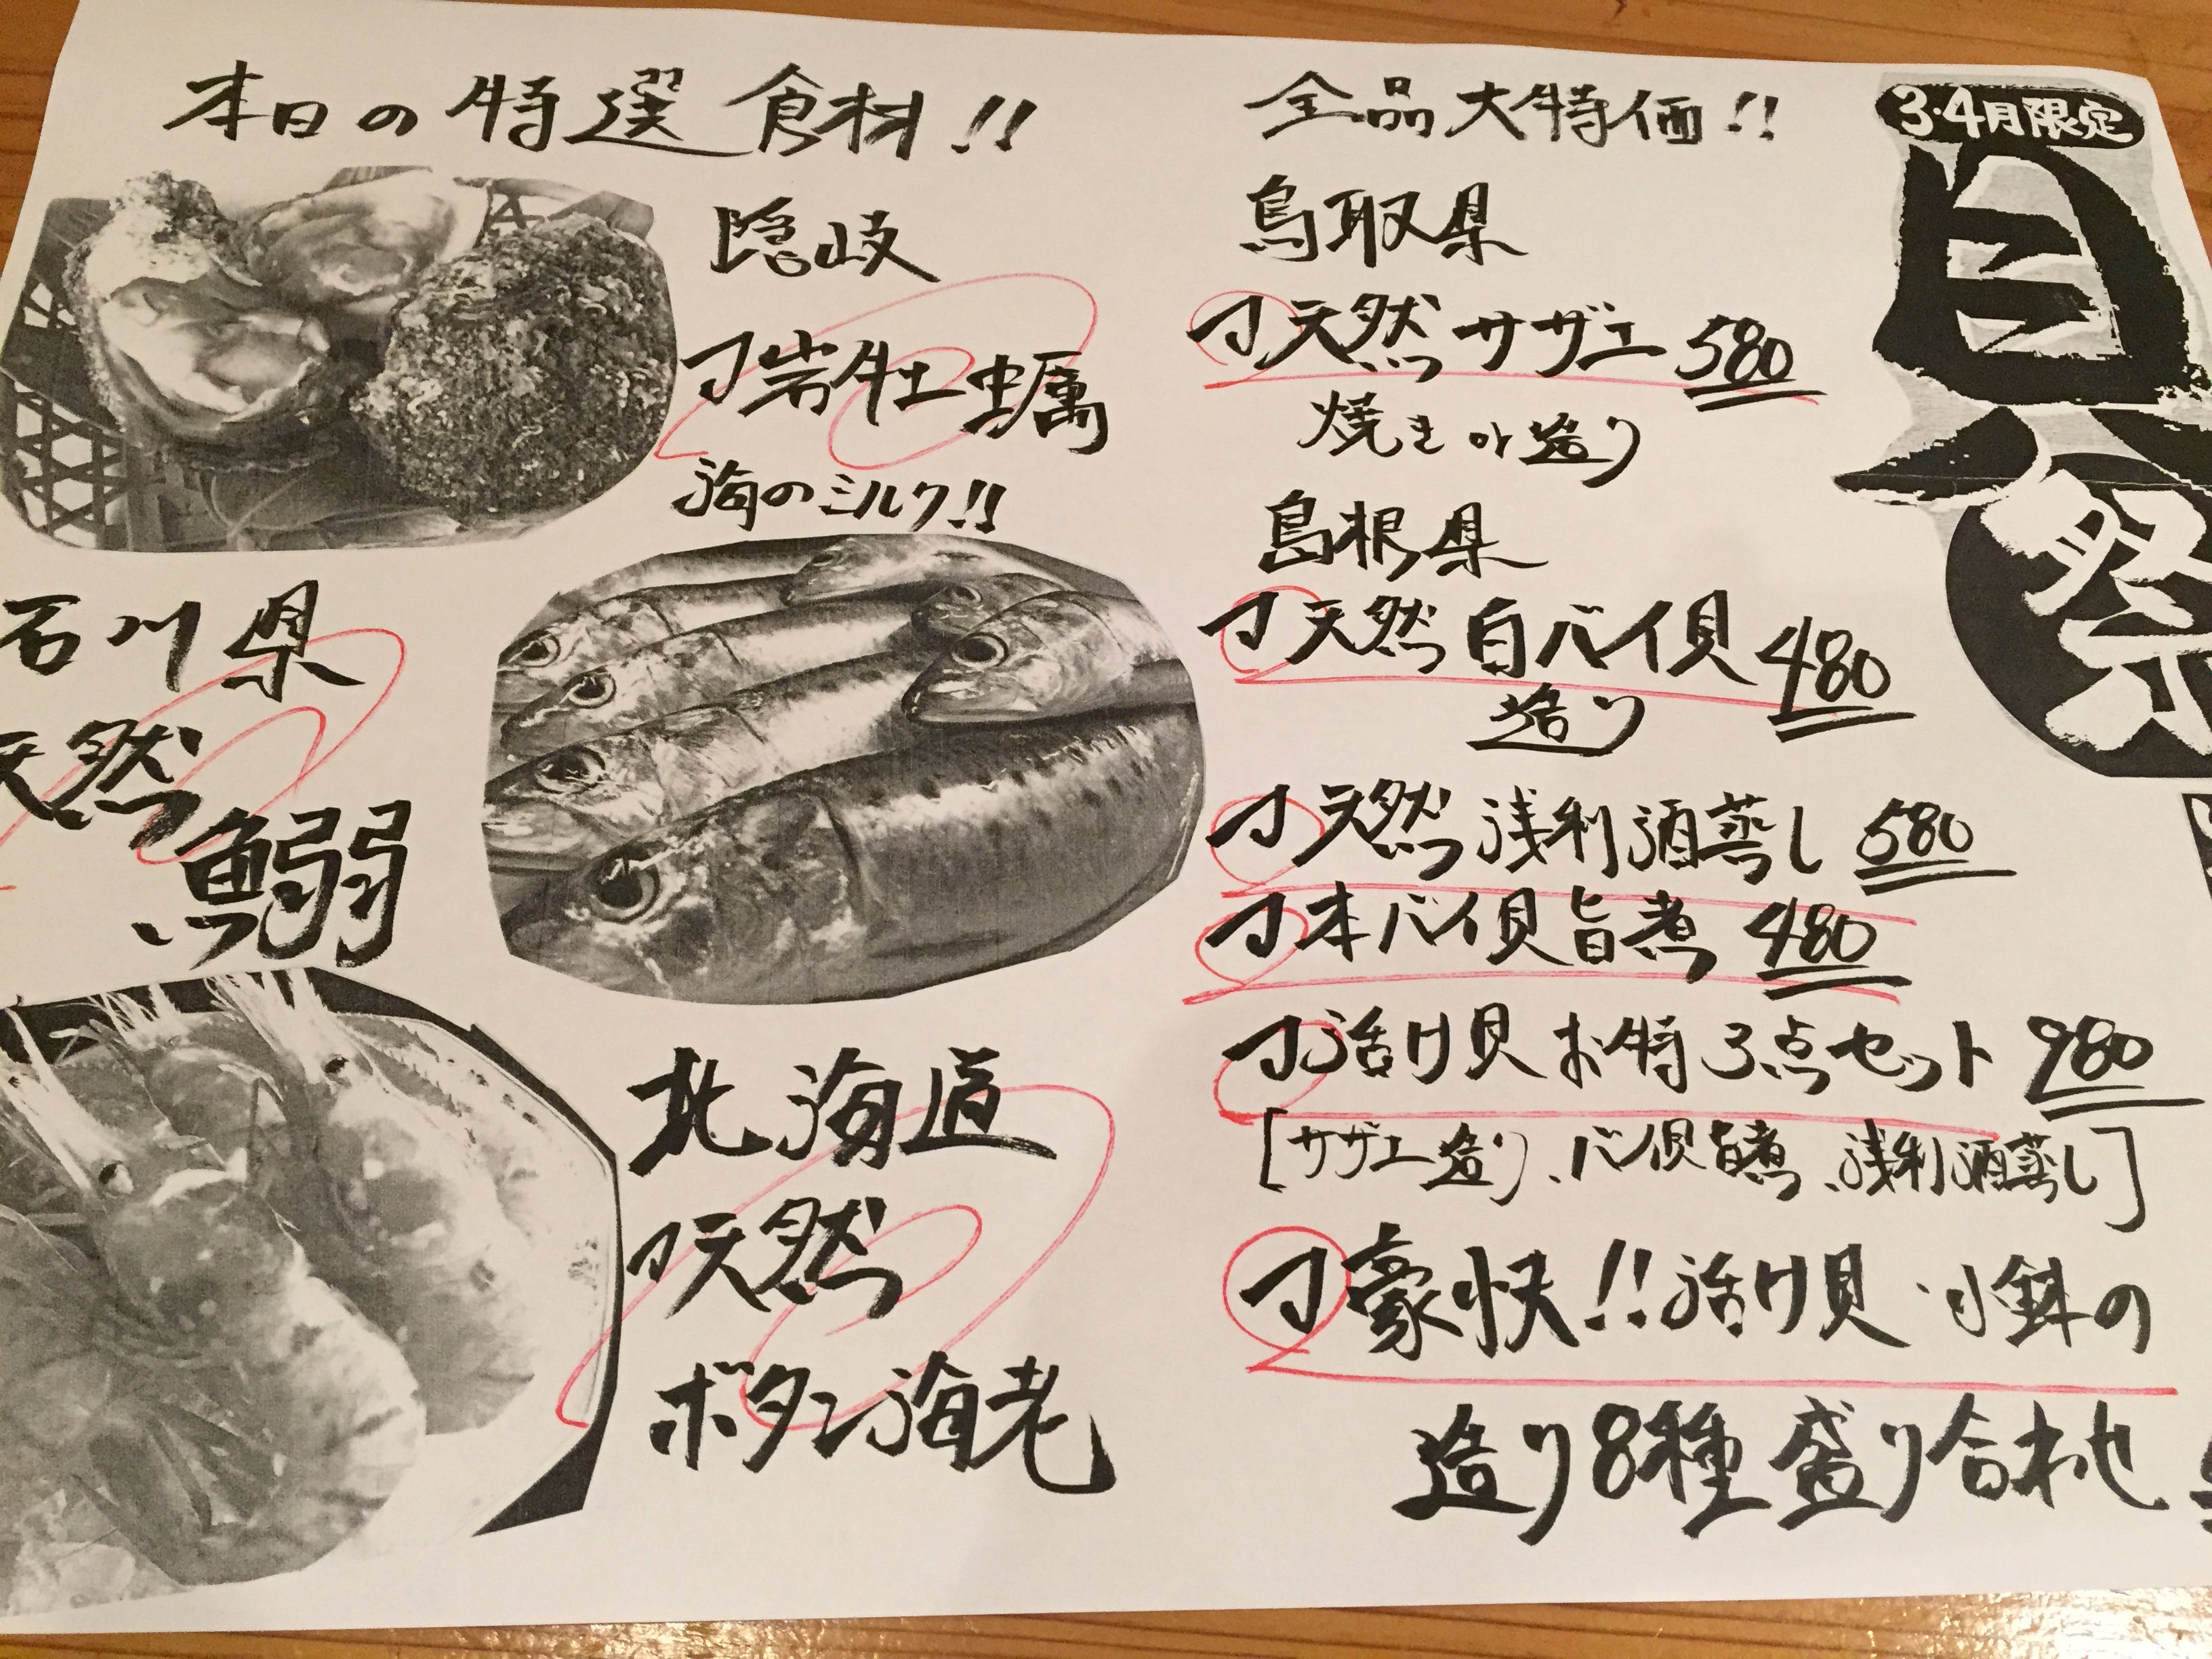 本日の特選食材!!
隠岐
岩牡蠣
海のミルク!!
石川県
天然
鰯
北海道
天然
ボタン海老
全品大特価!!
鳥取県
天然サザエ 580
焼き or 造り
島根県
天然白バイ貝 480
造り
天然浅利酒蒸し 580
本バイ貝旨煮 480
活け貝お特3点セット 980
[サザエ造り、バイ貝旨煮、浅利酒蒸し]
豪快!!活け貝小鉢の
造り8種盛り合わせ
3・4月限定
貝
祭